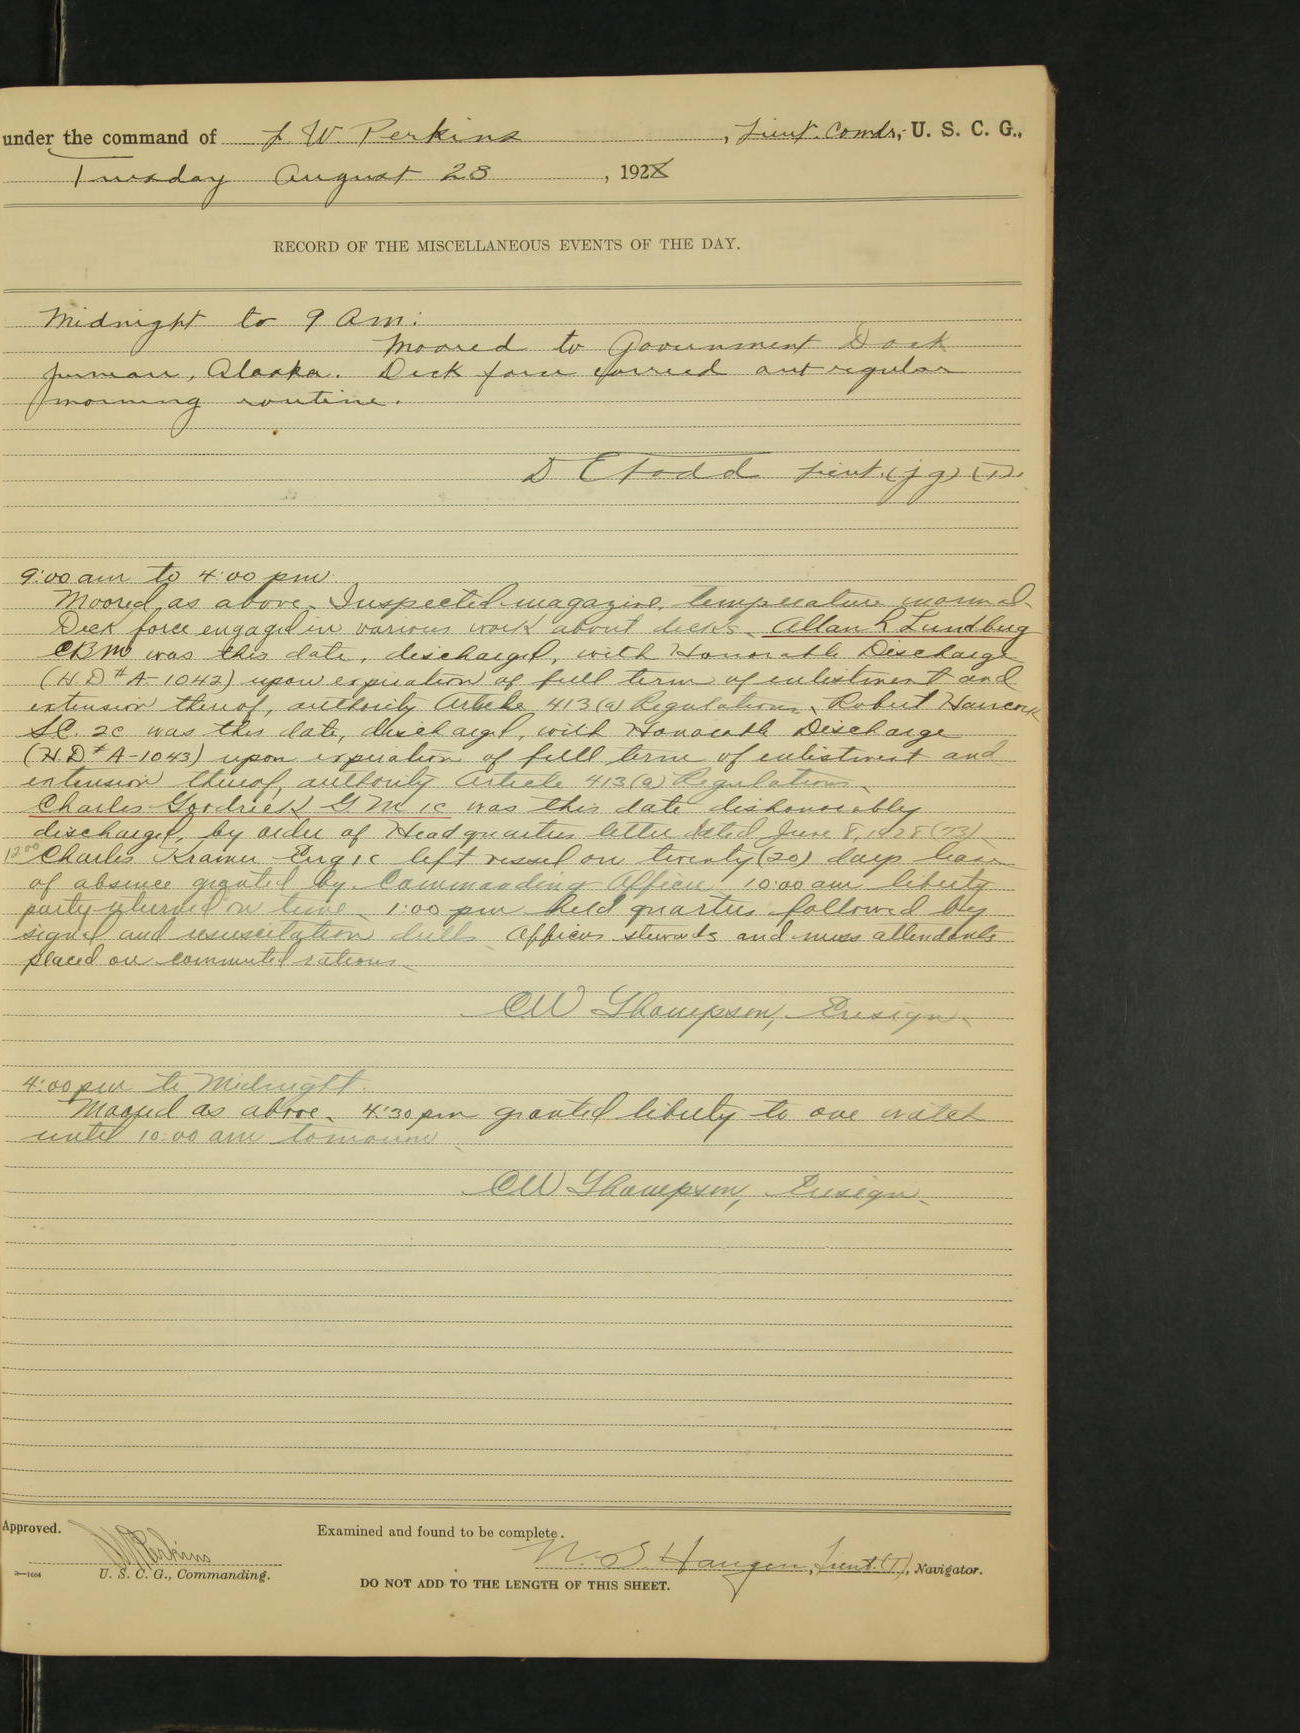 under the command of J W Perkins, Lieut. Comdr, U. S. C. G.,
Tuesday August 28, 1928
RECORD OF THE MISCELLANEOUS EVENTS OF THE DAY.
Midnight to 9 Am:
Moored to Government Dock
Juneau, Alaska. Deck force carried out regular
morning routine.
D E Todd Lieut. (jg) (T).
9:00 am to 4:00 pm
Moored as above. Inspected magazine, temperature normal.
Deck force engaged in various work about decks. Allan R Lundberg
CBM was this date, discharged, with Honorable Discharge
(H.D # A-1042) upon expiration of full term of enlistment and
extension thereof, authority Article 413(a) Regulations. Robert Hancock
SC. 2c was this date, discharged, with Honorable Discharge
(H D # A-1043) upon expiration of full term of enlistment and
extension thereof, authority Article 413(a) Regulations.
Charles Goodrich G M 1c was this date dishonorably
discharged, by order of Headquarters letter dated June 8, 1928 (73)
12:00 Charles Kramer Eng 1c left vessel on twenty (20) days leave
of absence granted by Commanding Officer 10:00 am liberty
party returned on time. 1:00 pm held quarters followed by
signal and resuscitation drills Officers stewards and mess attendants
placed on commuted rations.
CW Thompson, Ensign.
4:00 pm to Midnight.
Moored as above. 4:30 pm granted liberty to one watch
until 10:00 am tomorrow
CW Thompson, Ensign.
Approved.
Examined and found to be complete.
JW Perkins
N. S. Haugen, Lieut. (T), Navigator.
2—1664
U. S. C. G., Commanding.
DO NOT ADD TO THE LENGTH OF THIS SHEET.